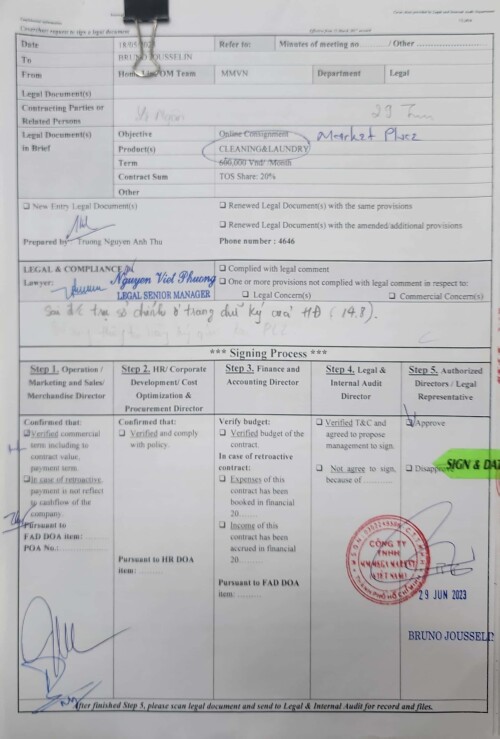 Coversheet: request to sign a legal document
Date 18/05/202 Refer to: Minutes of meeting no / Other
To BRUNO JOUSSELIN
From Home Lin OM Team MMVN Department Legal
Legal Document(s)
Contracting Parties or
Related Persons
29 Jun
Legal Document(s)
in Brief
Objective Online Consignment Market Place
Product(s) CLEANING&LAUNDRY
Term 600,000 Vnd/Month
Contract Sum TOS Share: 20%
Other
New Entry Legal Document(s)
Renewed Legal Document(s) with the same provisions
Renewed Legal Document(s) with the amended/additional provisions
Prepared by Truong Nguyen Anh Thu
Phone number : 4646
LEGAL & COMPLIANCE
Lawyer: Nguyen Viet Phuong
LEGAL SENIOR MANAGER
Complied with legal comment
One or more provisions not complied with legal comment in respect to:
Legal Concern(s) Commercial Concern(s)
*** Signing Process ***
Step 1. Operation /
Marketing and Sales/
Merchandise Director
Step 2. HR/ Corporate
Development/ Cost
Optimization &
Procurement Director
Step 3. Finance and
Accounting Director
Step 4. Legal &
Internal Audit
Director
Step 5. Authorized
Directors / Legal
Representative
Confirmed that:
Verified commercial
term including to
contract value,
payment term.
In case of retroactive,
payment is not reflect
to cashflow of the
company.
Pursuant to
FAD DOA item:
POA No.:
Confirmed that:
Verified and comply
with policy.
Pursuant to HR DOA
item:
Verify budget:
Verified budget of the
contract.
In case of retroactive
contract:
Expenses of this
contract has been
booked in financial
20
Income of this
contract has been
accrued in financial
20
Pursuant to FAD DOA
item:
Verified T&C and
agreed to propose
management to sign.
Not agree to sign,
because of
Approve
Disapprove
SIGN & DAT
CÔNG TY
TNHH
MM MEGA MARKET
VIỆT NAM
29 JUN 2023
BRUNO JOUSSELIN
After finished Step 5, please scan legal document and send to Legal & Internal Audit for record and files.